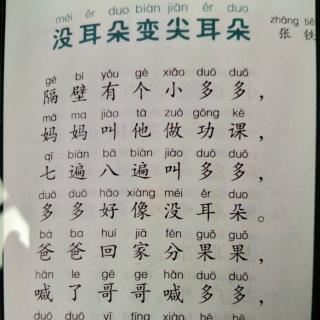 méi ěr duo biàn jiān ěr duo
没耳朵变尖耳朵
zhāng tiě
张铁
gé bì yǒu gè xiǎo duō duō
隔壁有个小多多，
mā ma jiào tā zuò gōng kè
妈妈叫他做功课，
qī biàn bā biàn jiào duō duō
七遍八遍叫多多，
duō duō hǎo xiàng méi ěr duo
多多好像没耳朵。
bà ba huí jiā fēn guǒ guǒ
爸爸回家分果果，
hǎn le gē ge hǎn duō duō
喊了哥哥喊多多，
duō duō yì tīng xiào hē hē